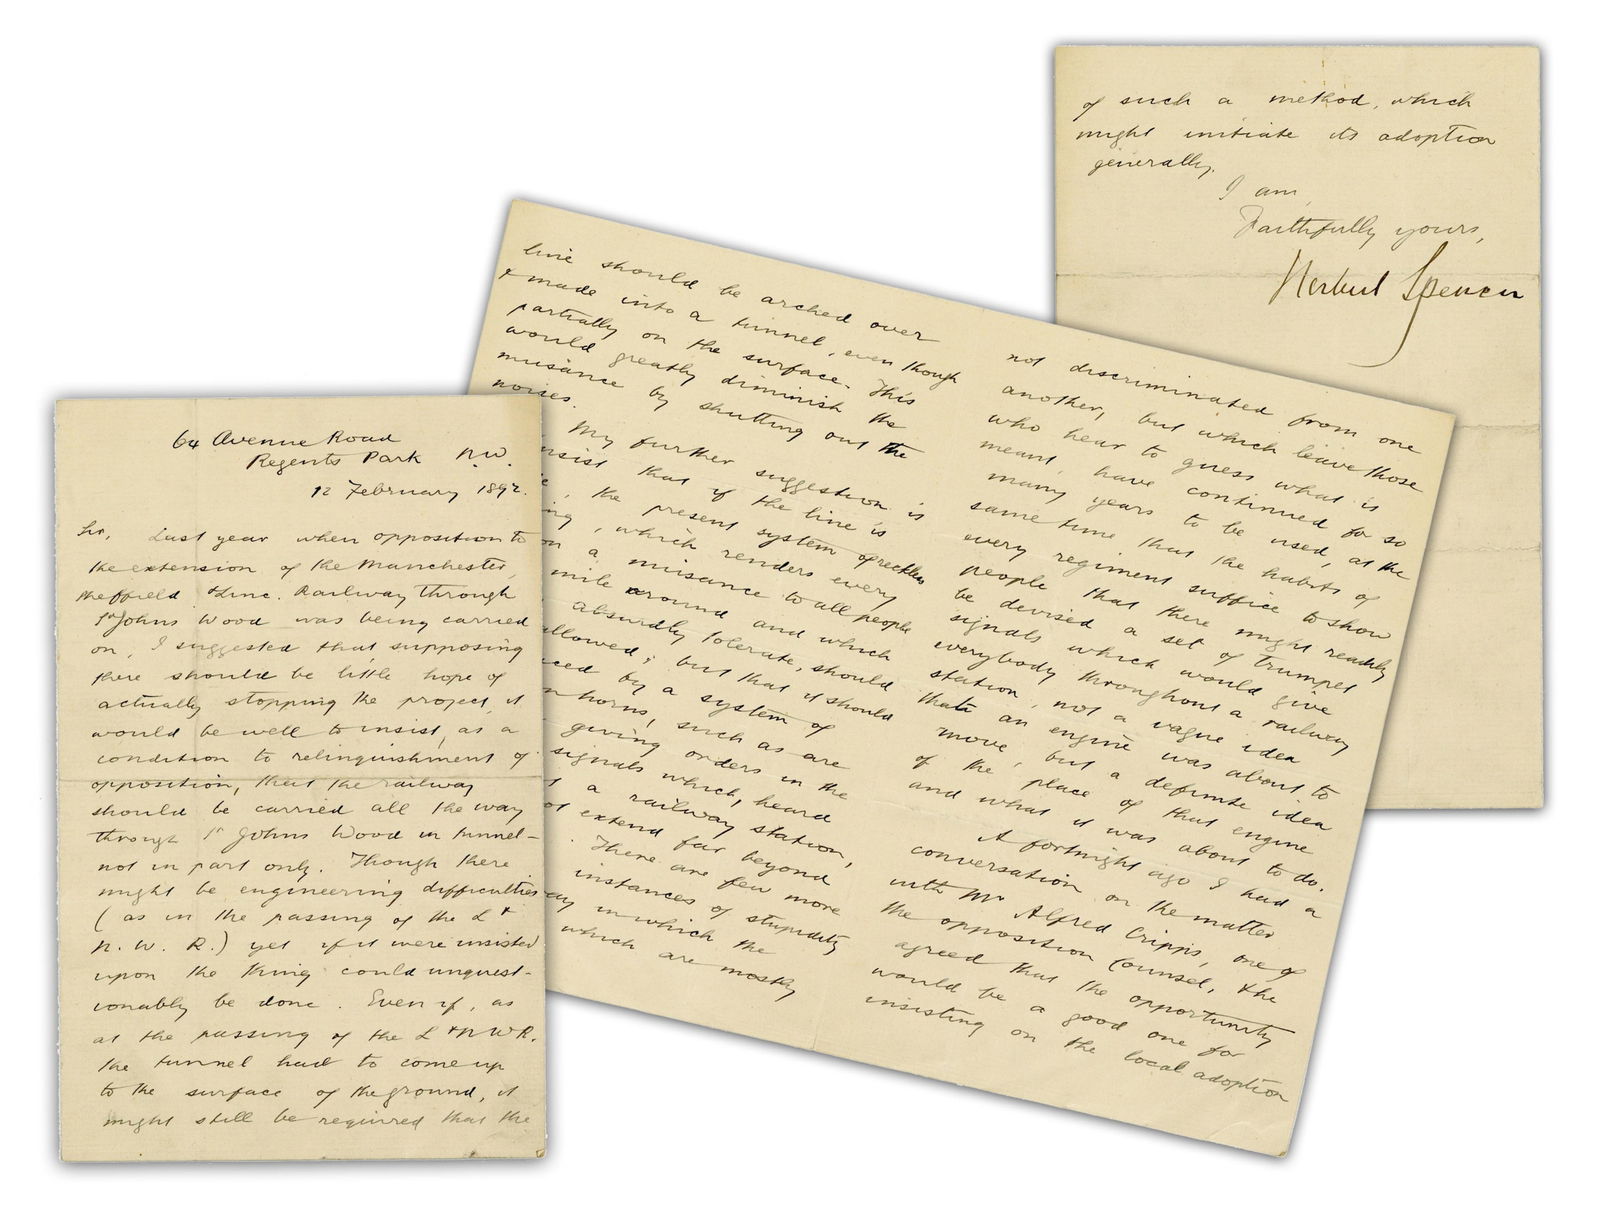 64 Avenue Road
Regents Park N.W.
12 February 1892.
Sir, Last year when opposition to
the extension of the Manchester,
Sheffield & Linc. Railway through
St Johns Wood was being carried
on, I suggested that supposing
there should be little hope of
actually stopping the project, it
would be well to insist, as a
condition to relinquishment of
opposition, that the railway
should be carried all the way
through St Johns Wood in tunnel-
not in part only. Though there
might be engineering difficulties
(as in the passing of the L &
N. W. R.) yet if it were insisted
upon the thing could unquest-
ionably be done. Even if, as
at the passing of the L & N W R.
the tunnel had to come up
to the surface of the ground, it
might still be required that the
line should be arched over
& made into a tunnel, even though
partially on the surface. This
would greatly diminish the
nuisance by shutting out the
noises.
My further suggestion is
insist that if the line is
, the present system of reckless
ing, which renders every
on a nuisance to all people
mile around and which
absurdly tolerate, should
allowed; but that it should
ced by a system of
horns, such as are
giving orders in the
signals which, heard
a railway station,
ot extend far beyond
. There are few more
instances of stupidity
ay in which the
which are mostly
not discriminated from one
another, but which leave those
who hear to guess what is
meant, have continued for so
many years to be used, at the
same time that the habits of
every regiment suffice to show
people that there might readily
be devised a set of trumpet
signals which would give
everybody throughout a railway
station, not a vague idea
that an engine was about to
move, but a definite idea
of the place of that engine
and what it was about to do.
A fortnight ago I had a
conversation on the matter
with Mr Alfred Cripps, one of
the opposition Counsel, & he
agreed that the opportunity
would be a good one for
insisting on the local adoption
of such a method, which
might initiate its adoption
generally.
I am,
Faithfully yours,
Herbert Spencer